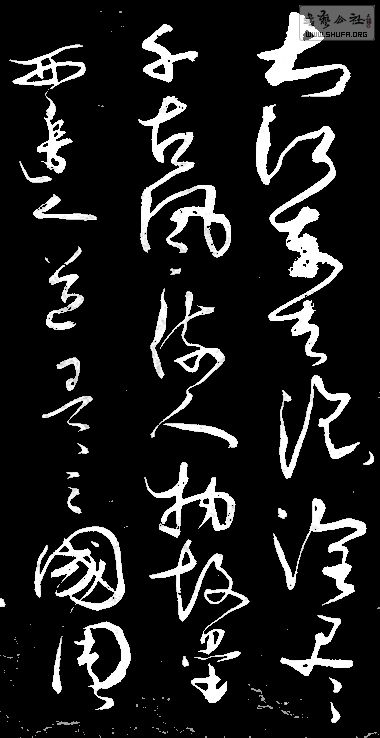 大江東去浪淘尽
千古風流人物故壘
西邊人道是三國周
書藝公社
WWW.SHUFA.ORG